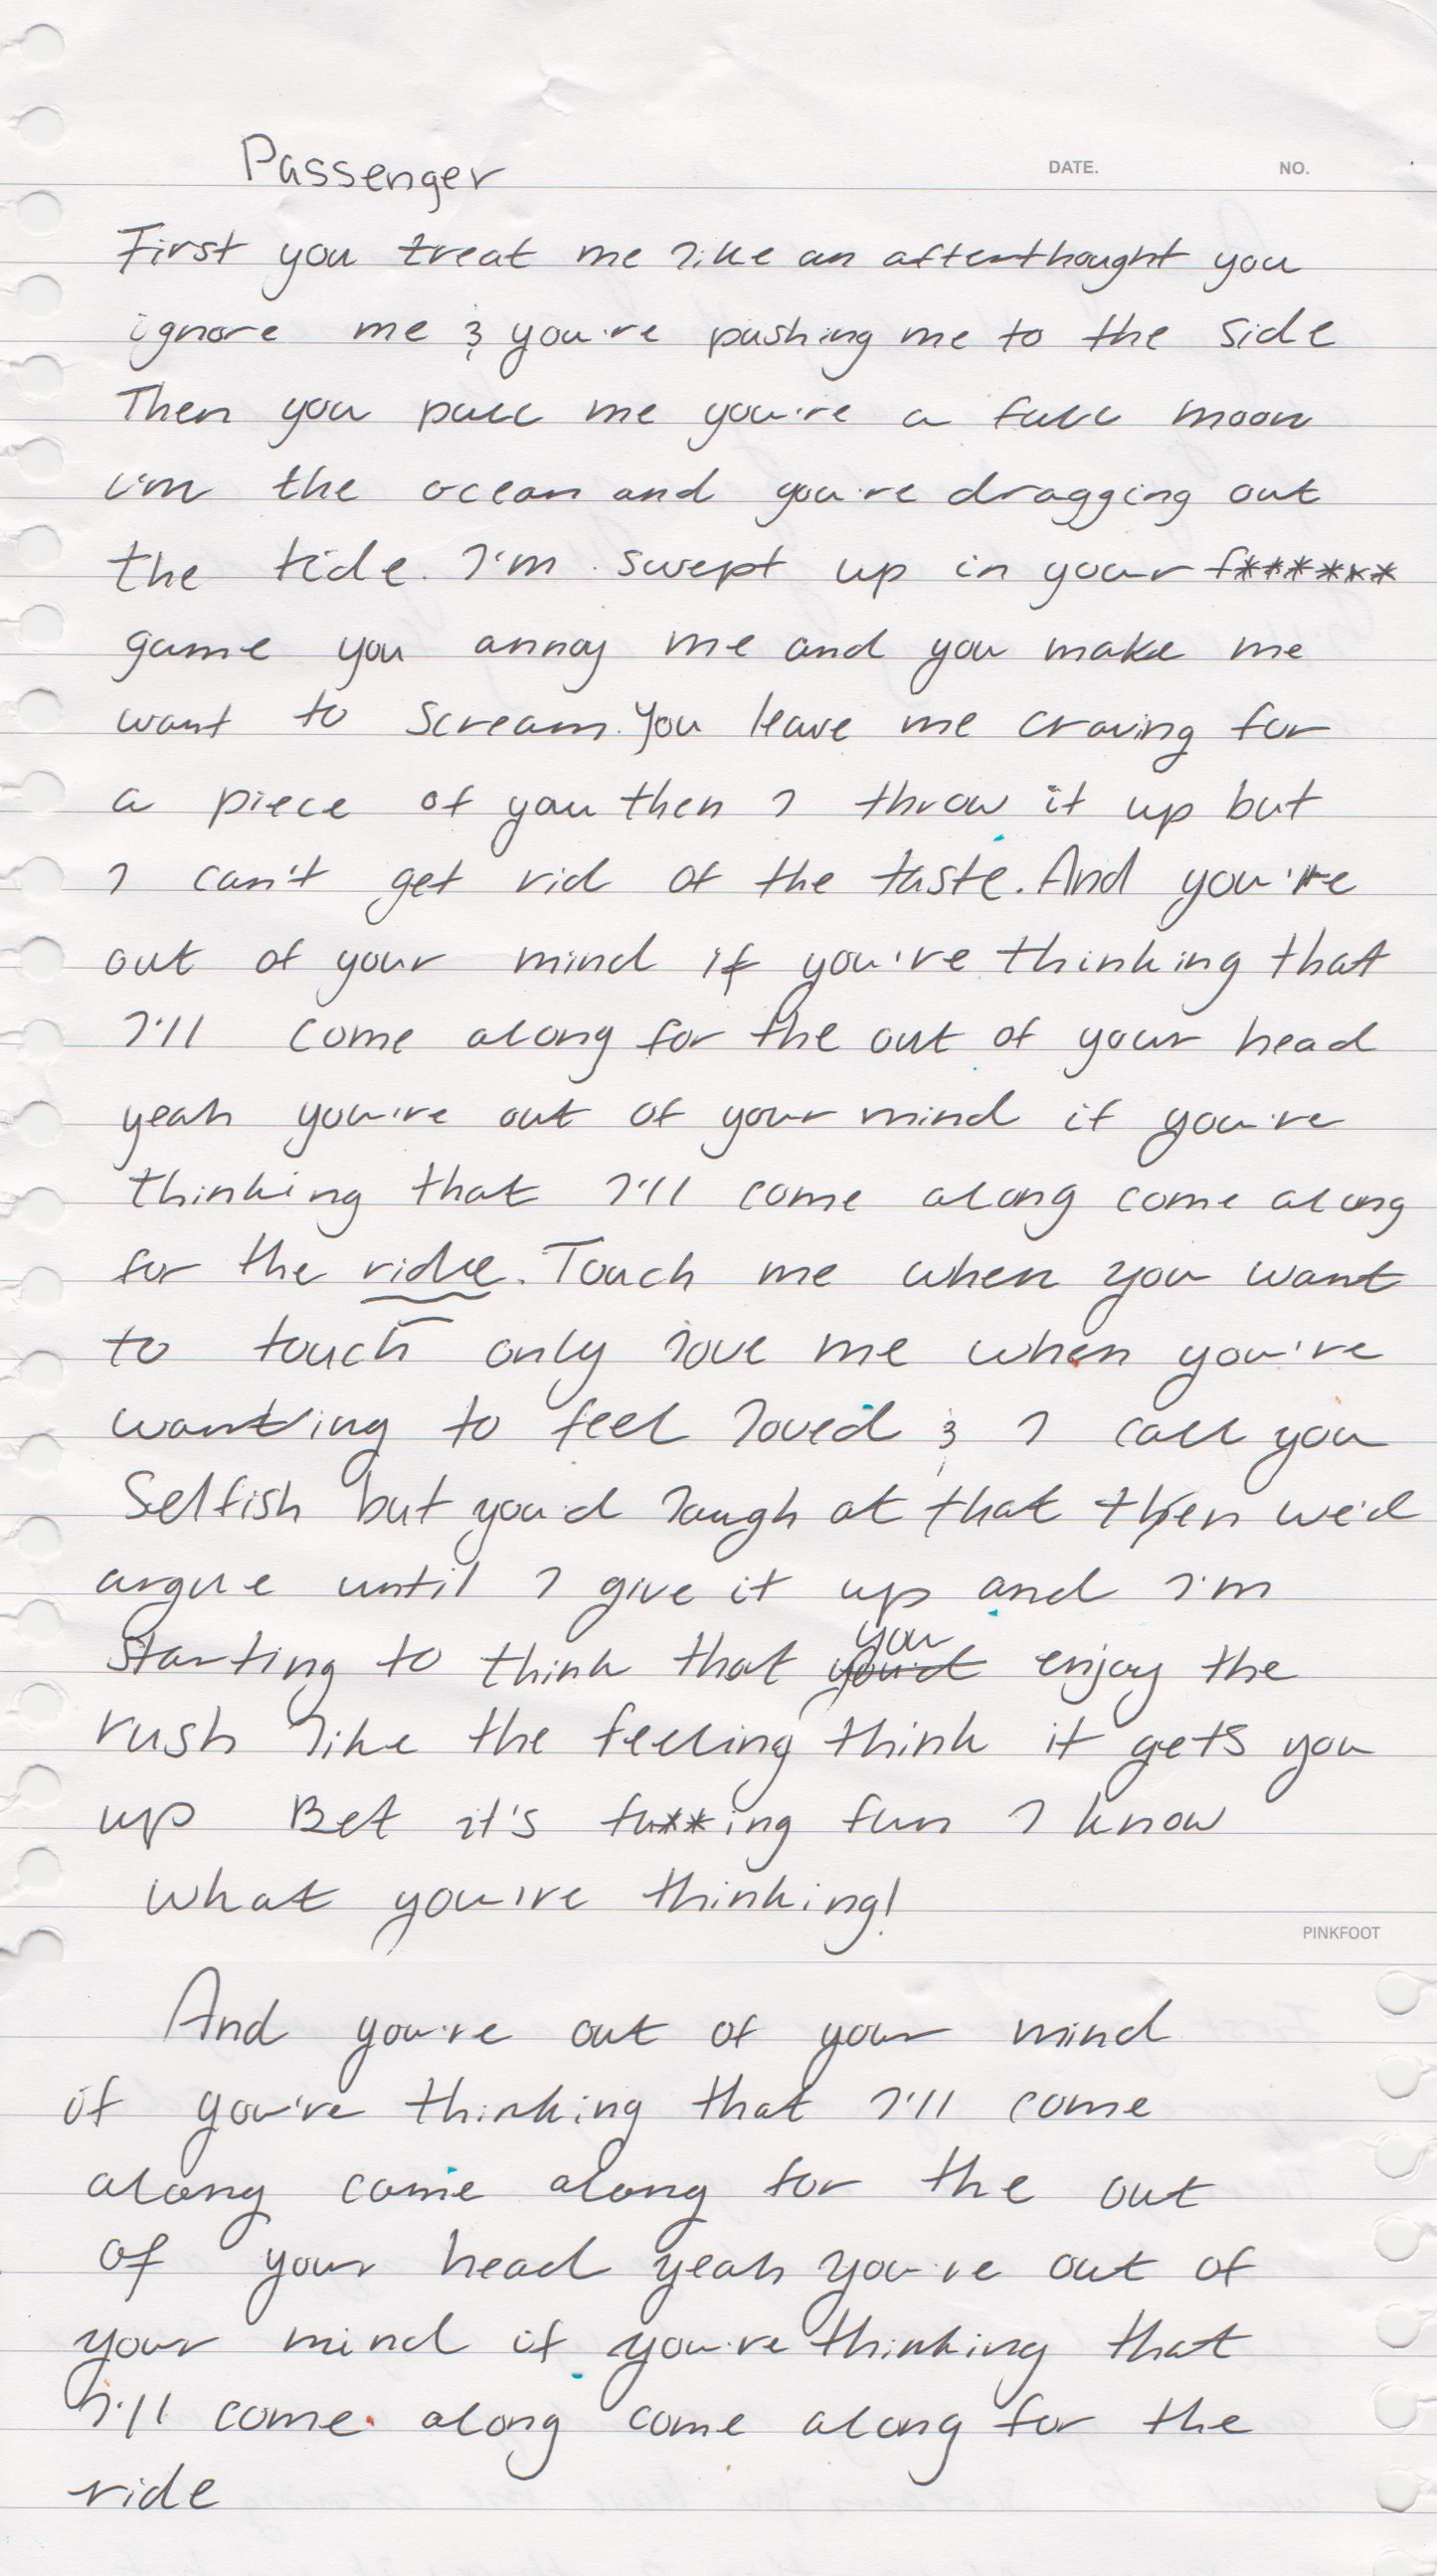 Passenger
DATE. NO.
First you treat me like an afterthought you
ignore me & you're pushing me to the side
Then you pull me you're a full moon
i'm the ocean and you're dragging out
the tide. I'm swept up in your f******
game you annoy me and you make me
want to scream. You leave me craving for
a piece of you then I throw it up but
I can't get rid of the taste. And you're
out of your mind if you're thinking that
I'll come along for the out of your head
yeah you're out of your mind if you're
thinking that I'll come along come along
for the ride. Touch me when you want
to touch only love me when you're
wanting to feel loved & I call you
Selfish but you'd laugh at that then we'd
argue until I give it up and I'm
starting to think that you you'd enjoy the
rush like the feeling think it gets you
up Bet it's fu**ing fun I know
what you're thinking!
PINKFOOT
And you're out of your mind
if you're thinking that I'll come
along come along for the out
of your head yeah you're out of
your mind if you're thinking that
I'll come along come along for the
ride